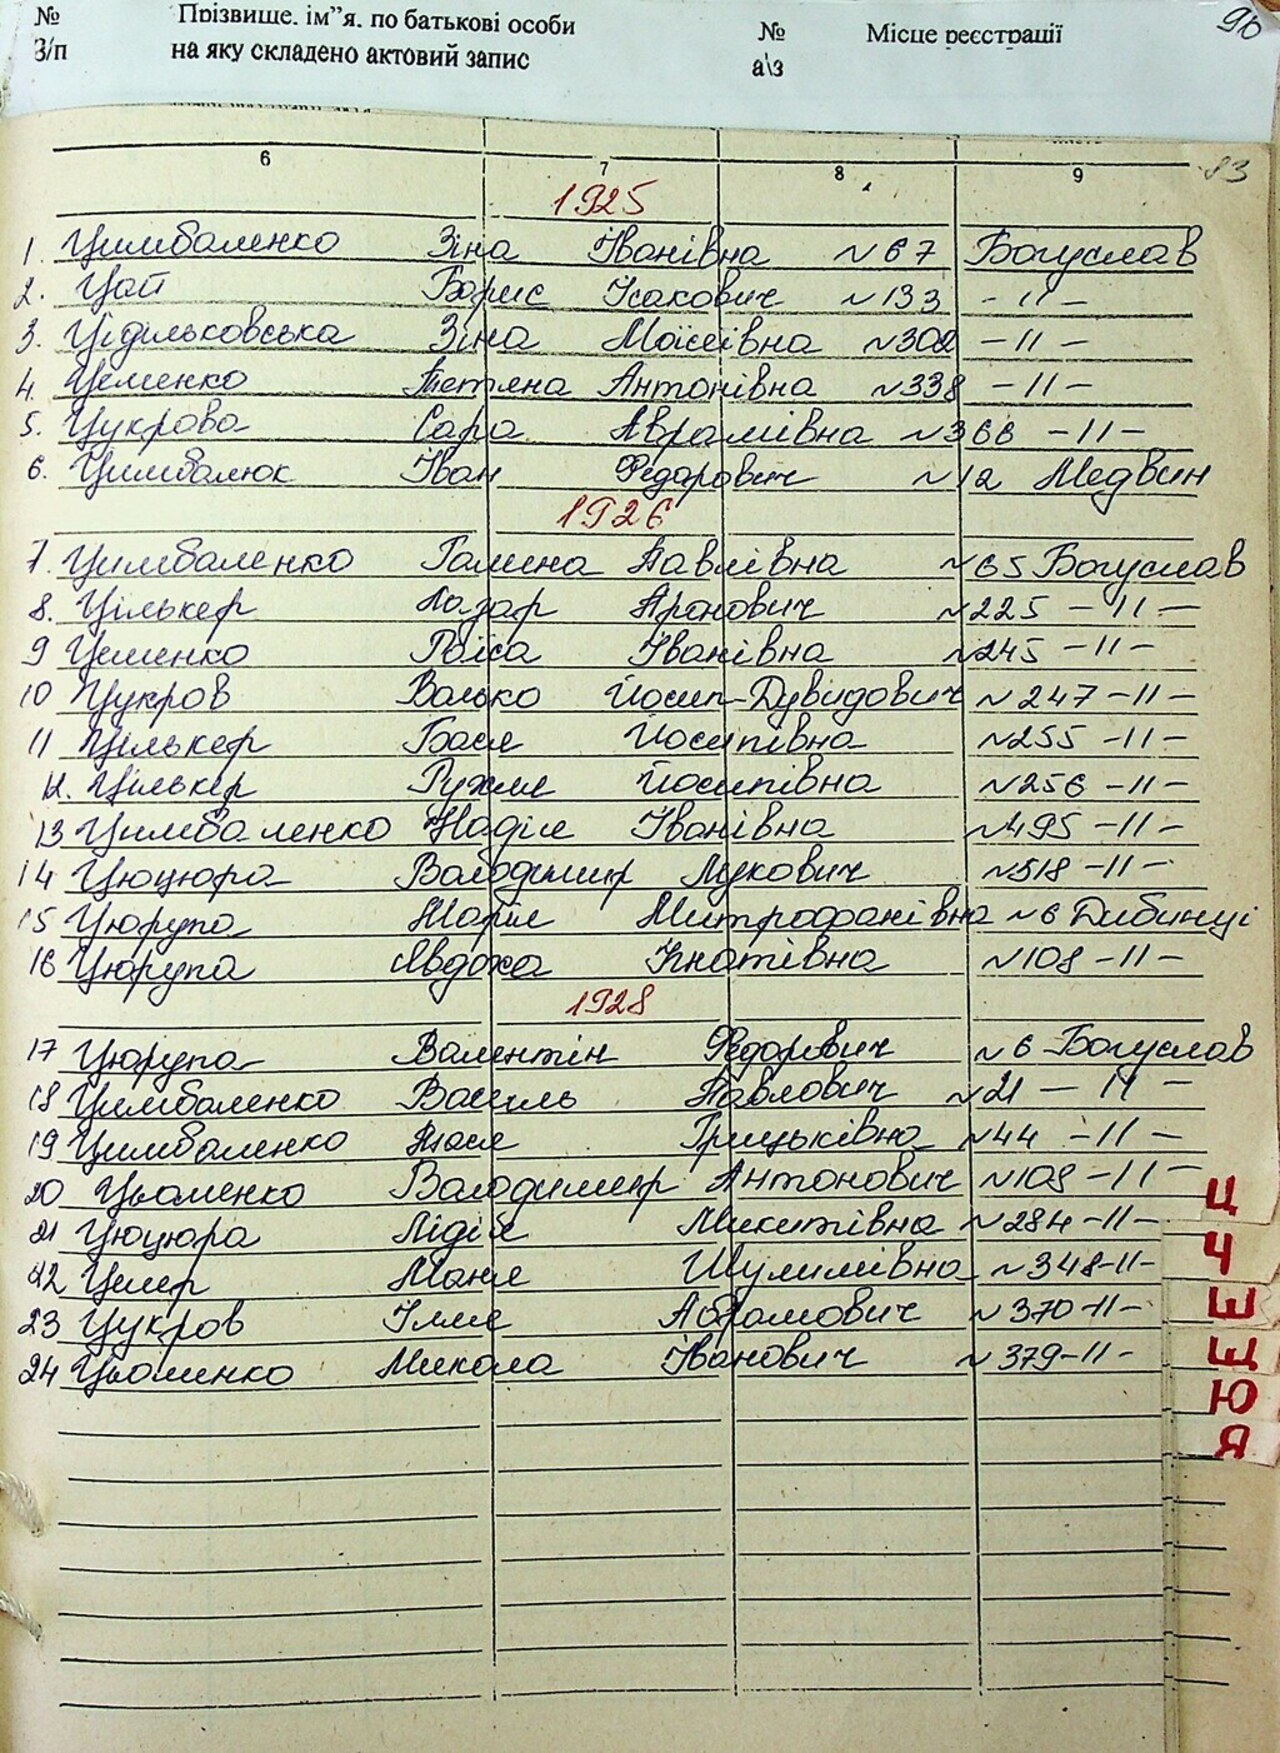 № Прізвище, ім”я, по батькові особи № Місце реєстрації 90
З/п на яку складено актовий запис а\з
6 7 8 9 83
1925
1. Цимбаленко Зіна Іванівна №67 Богуслав
2. Цап Борис Ісакович №133 -11-
3. Цідільковська Зіна Мойсіївна №302 -11-
4. Цеменко Тетяна Антонівна №338 -11-
5. Цукрова Сара Аврамівна №366 -11-
6. Цимбалюк Іван Федорович №12 Медвин
1926
7. Цимбаленко Галина Павлівна №65 Богуслав
8. Цількер Лазар Аронович №225 -11-
9 Цеменко Раїса Іванівна №245 -11-
10 Цукров Валько Йосип-Дувидович №247 -11-
11 Цількер Бася Йосипівна №255 -11-
12. Цількер Рухля Йосипівна №256 -11-
13 Цимбаленко Надія Іванівна №495 -11-
14 Цюцюра Володимир Лукович №518 -11-
15 Цюрупа Марія Митрофанівна №6 Дибинці
16 Цюрупа Явдоха Гнатівна №108 -11-
1928
17 Цюрупа Валентін Федорович №6 Богуслав
18 Цимбаленко Василь Павлович №21 -11-
19 Цимбаленко Грицьківна №44 -11-
20 Цьоменко Володимир Антонович №108 -11-
21 Цюцюра Лідія Микитівна №284 -11-
22 Маня Шулимівна №348 -11-
23 Цукров Ілля Абрамович №370 -11-
24 Цьоменко Микола Іванович №379 -11-
Ц
Ч
Е
Ю
Я